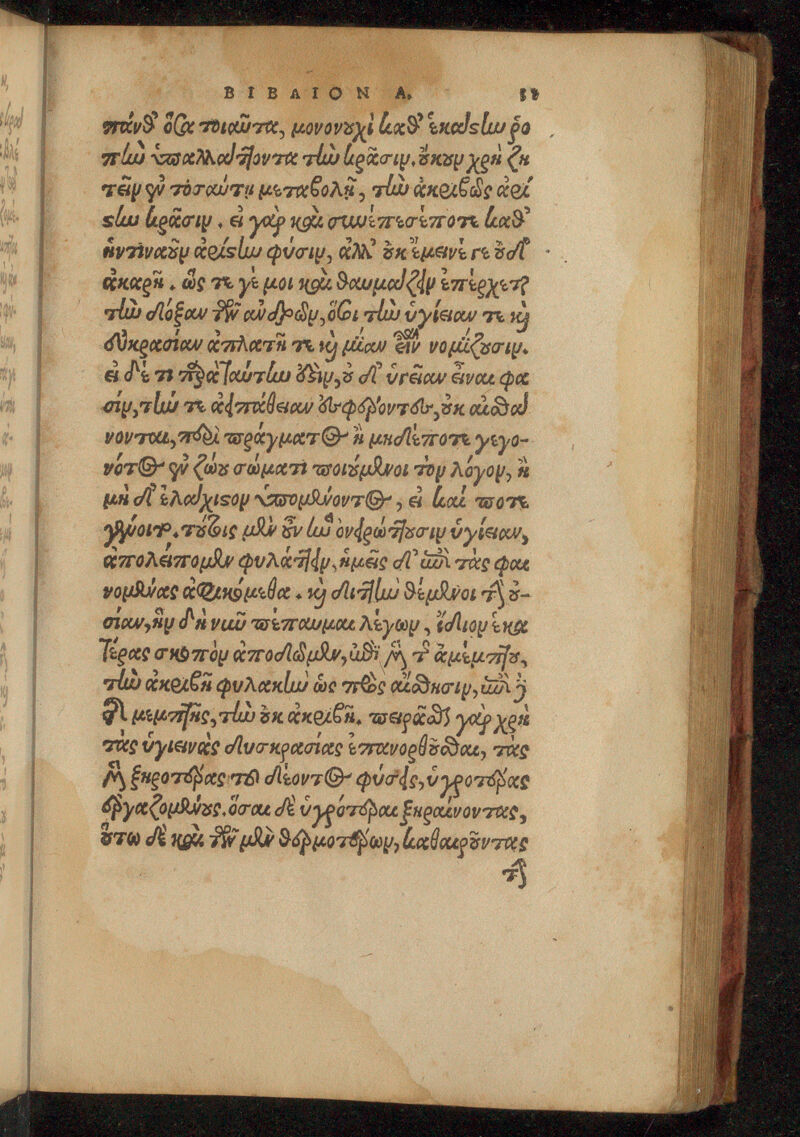 ΒΙΒΛΙΟΝ Α.
πάνθ' ὅσα τοιαῦτα, μονονουχὶ καθ' ἑκάστην ῥο
πὴν ὑπαλλάττοντα τὴν κρᾶσιν. οὔκουν χρὴ ζη
τεῖν ἐν τοσαύτῃ μεταβολῇ, τὴν ἀκριβῶς ἀρί
στην κρᾶσιν. εἰ γὰρ καὶ συνέπεσέ ποτε καθ'
ἡντιναοῦν ἀρίστην φύσιν, ἀλλ' οὐκ ἔμεινέ γε οὐδ'
ἀκαρῆ. ὥς τέ γέ μοι καὶ θαυμάζειν ἐπέρχεται
τὴν δόξαν τῶν ἀνδρῶν, ὅσοι τὴν ὑγίειαν τε καὶ
εὐκρασίαν ἀπλατῆ τε καὶ μίαν εἶν νομίζουσιν.
εἰ δέ τι παρὰ ταύτην ἐστὶν, οὐδ' ὑγείαν εἶναι φα
σίν, τὴν τε ἀειπάθειαν εἰσφέροντες, οὐκ αἰσθά
νονται, περὶ πράγματος ἢ μηδέποτε γεγο-
νότος ἐν ζώου σώματι ποιούμενοι τὸν λόγον, ἢ
μὴ δ' ἐλάχιστον ὑπομένοντος, εἰ καί ποτε
γένοιτο. τούτοις μὲν οὖν ἣν ὀνειρώττουσιν ὑγίειαν,
ἀπολείπομεν φυλάττειν, ἡμεῖς δ' ἐπὶ τὰς φαι
νομένας ἀφικόμεθα. καὶ διττὴν θέμενοι τὴν οὐ-
σίαν, ἣν δὴ νῦν πέπαυμαι λέγων, ἴδιον ἑκα
τέρας σκοπὸν ἀποδῶμεν, ἐπὶ μὲν τῆς ἀμέμπτου,
τὴν ἀκριβῆ φυλακὴν ὡς πρὸς αἴσθησιν, ἐπὶ δὲ
τῆς μεμπτῆς, τὴν οὐκ ἀκριβῆ. πειρᾶσθαι γὰρ χρὴ
τὰς ὑγιεινὰς δυσκρασίας ἐπανορθοῦσθαι, τὰς
μὲν ξηροτέρας τοῦ δέοντος φύσεις, ὑγροτέρας
ἐργαζομένους. ὅσαι δὲ ὑγρότεραι ξηραίνοντας,
οὕτω δὲ καὶ τῶν μὲν θερμοτέρων, καθαιροῦντας
τὴν